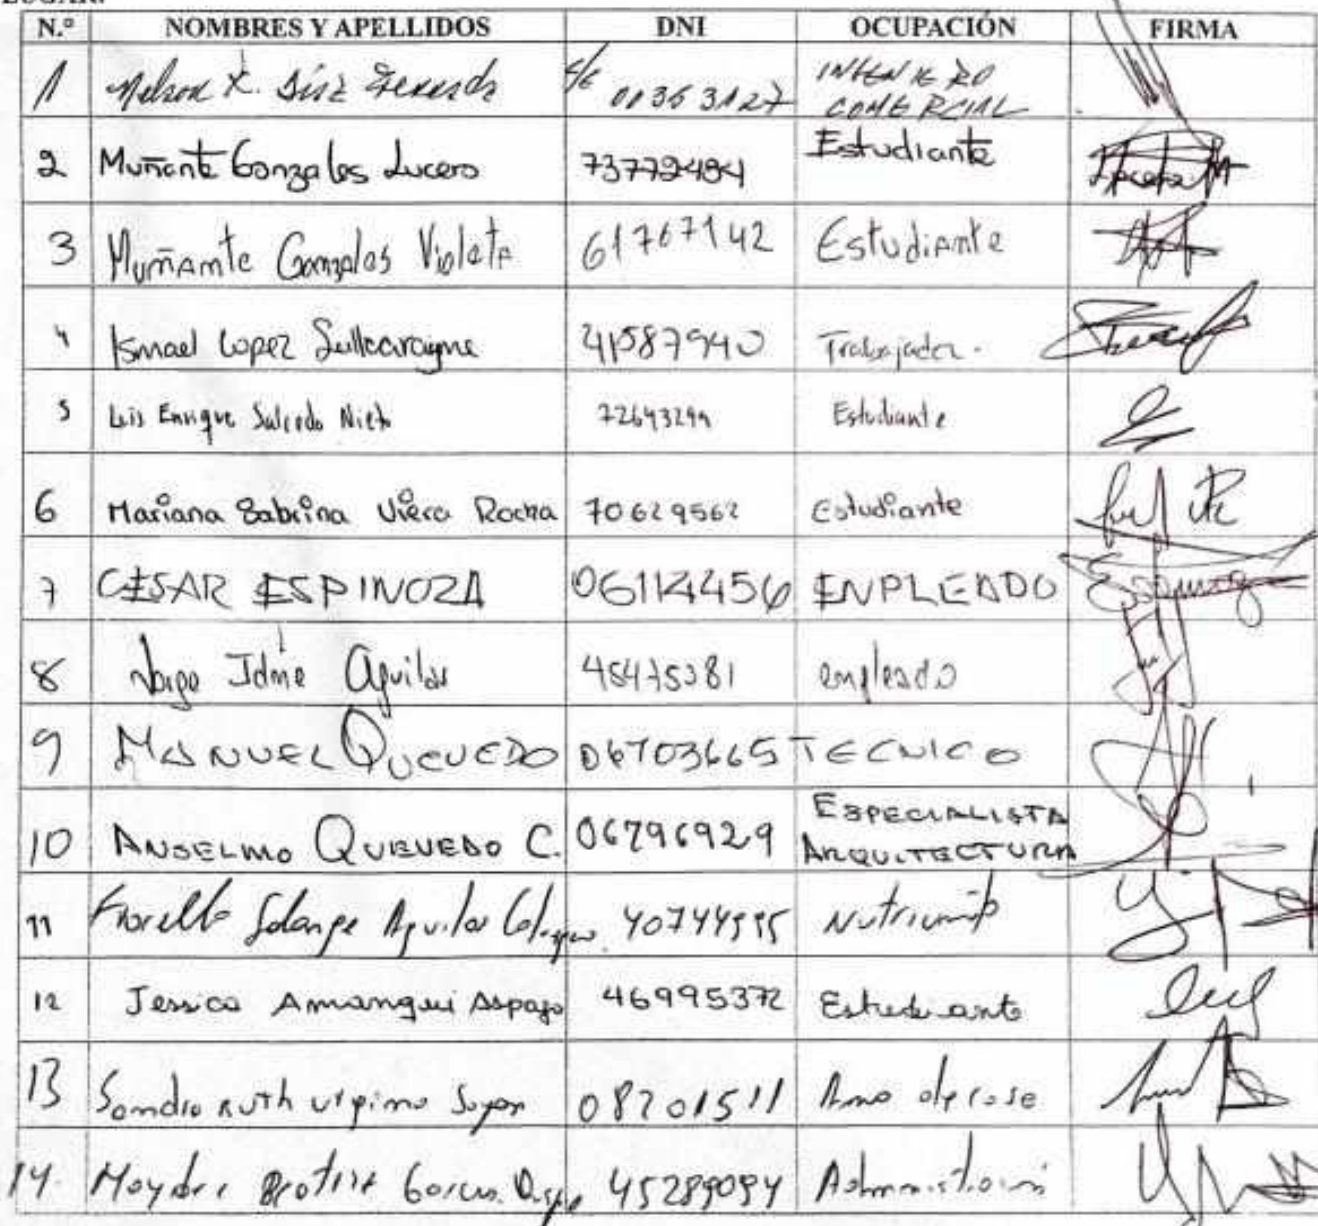 N.º NOMBRES Y APELLIDOS DNI OCUPACIÓN FIRMA
1 Nelson X. Díaz C/E 001363127 INGENIERO
COMERCIAL
2 Muñante Gonzales Lucero 73779494 Estudiante
3 Muñante Gonzales Violeta 61767142 Estudiante
4 Ismael Lopez 41587940 Trabajador.
5 Luis Enrique Salcedo Nieto Estudiante
6 Mariana Sabrina Viera Rocha 70629562 Estudiante
7 CESAR ESPINOZA 06114456 ENPLEADO
8 Jorge Jaime Aguilar 45475381 empleado
9 MANUEL QUEVEDO 06703665 TECNICO
10 ANSELMO QUEVEDO C. 06796929 ESPECIALISTA
ARQUITECTURA
11 Fiorella Solange Aguilar 40744595
12 Jessica Amangui Aspajo 46995372 Estudiante
13 Sandra Ruth 08201511 Ama de casa
14. 45289094